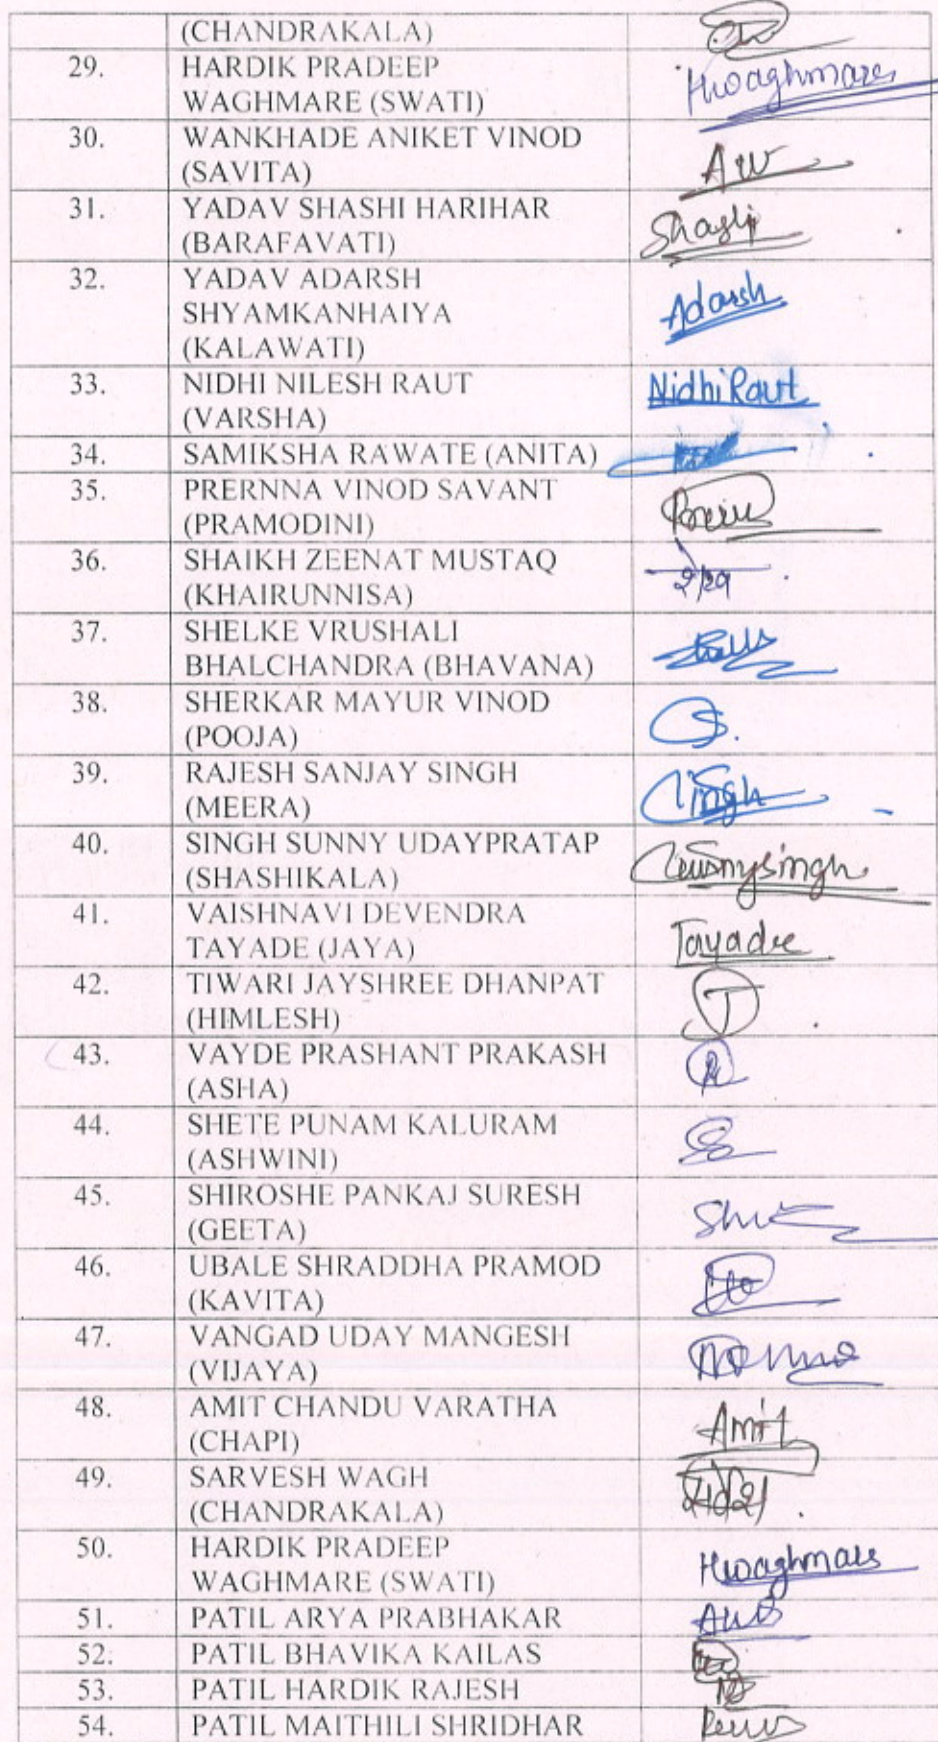 (CHANDRAKALA)
29. HARDIK PRADEEP
WAGHMARE (SWATI) Hwaghmare
30. WANKHADE ANIKET VINOD
(SAVITA) AW
31. YADAV SHASHI HARIHAR
(BARAFAVATI) Shashi
32. YADAV ADARSH
SHYAMKANHAIYA Adarsh
(KALAWATI)
33. NIDHI NILESH RAUT Nidhi Raut
(VARSHA)
34. SAMIKSHA RAWATE (ANITA)
35. PRERNNA VINOD SAVANT
(PRAMODINI)
36. SHAIKH ZEENAT MUSTAQ
(KHAIRUNNISA)
37. SHELKE VRUSHALI
BHALCHANDRA (BHAVANA)
38. SHERKAR MAYUR VINOD
(POOJA) S.
39. RAJESH SANJAY SINGH
(MEERA) Singh
40. SINGH SUNNY UDAYPRATAP
(SHASHIKALA)
41. VAISHNAVI DEVENDRA
TAYADE (JAYA) Tayade
42. TIWARI JAYSHREE DHANPAT
(HIMLESH) T
43. VAYDE PRASHANT PRAKASH
(ASHA)
44. SHETE PUNAM KALURAM
(ASHWINI)
45. SHIROSHE PANKAJ SURESH
(GEETA)
46. UBALE SHRADDHA PRAMOD
(KAVITA)
47. VANGAD UDAY MANGESH
(VIJAYA)
48. AMIT CHANDU VARATHA
(CHAPI) Amit
49. SARVESH WAGH
(CHANDRAKALA)
50. HARDIK PRADEEP
WAGHMARE (SWATI) Hwaghmare
51. PATIL ARYA PRABHAKAR
52. PATIL BHAVIKA KAILAS
53. PATIL HARDIK RAJESH
54. PATIL MAITHILI SHRIDHAR